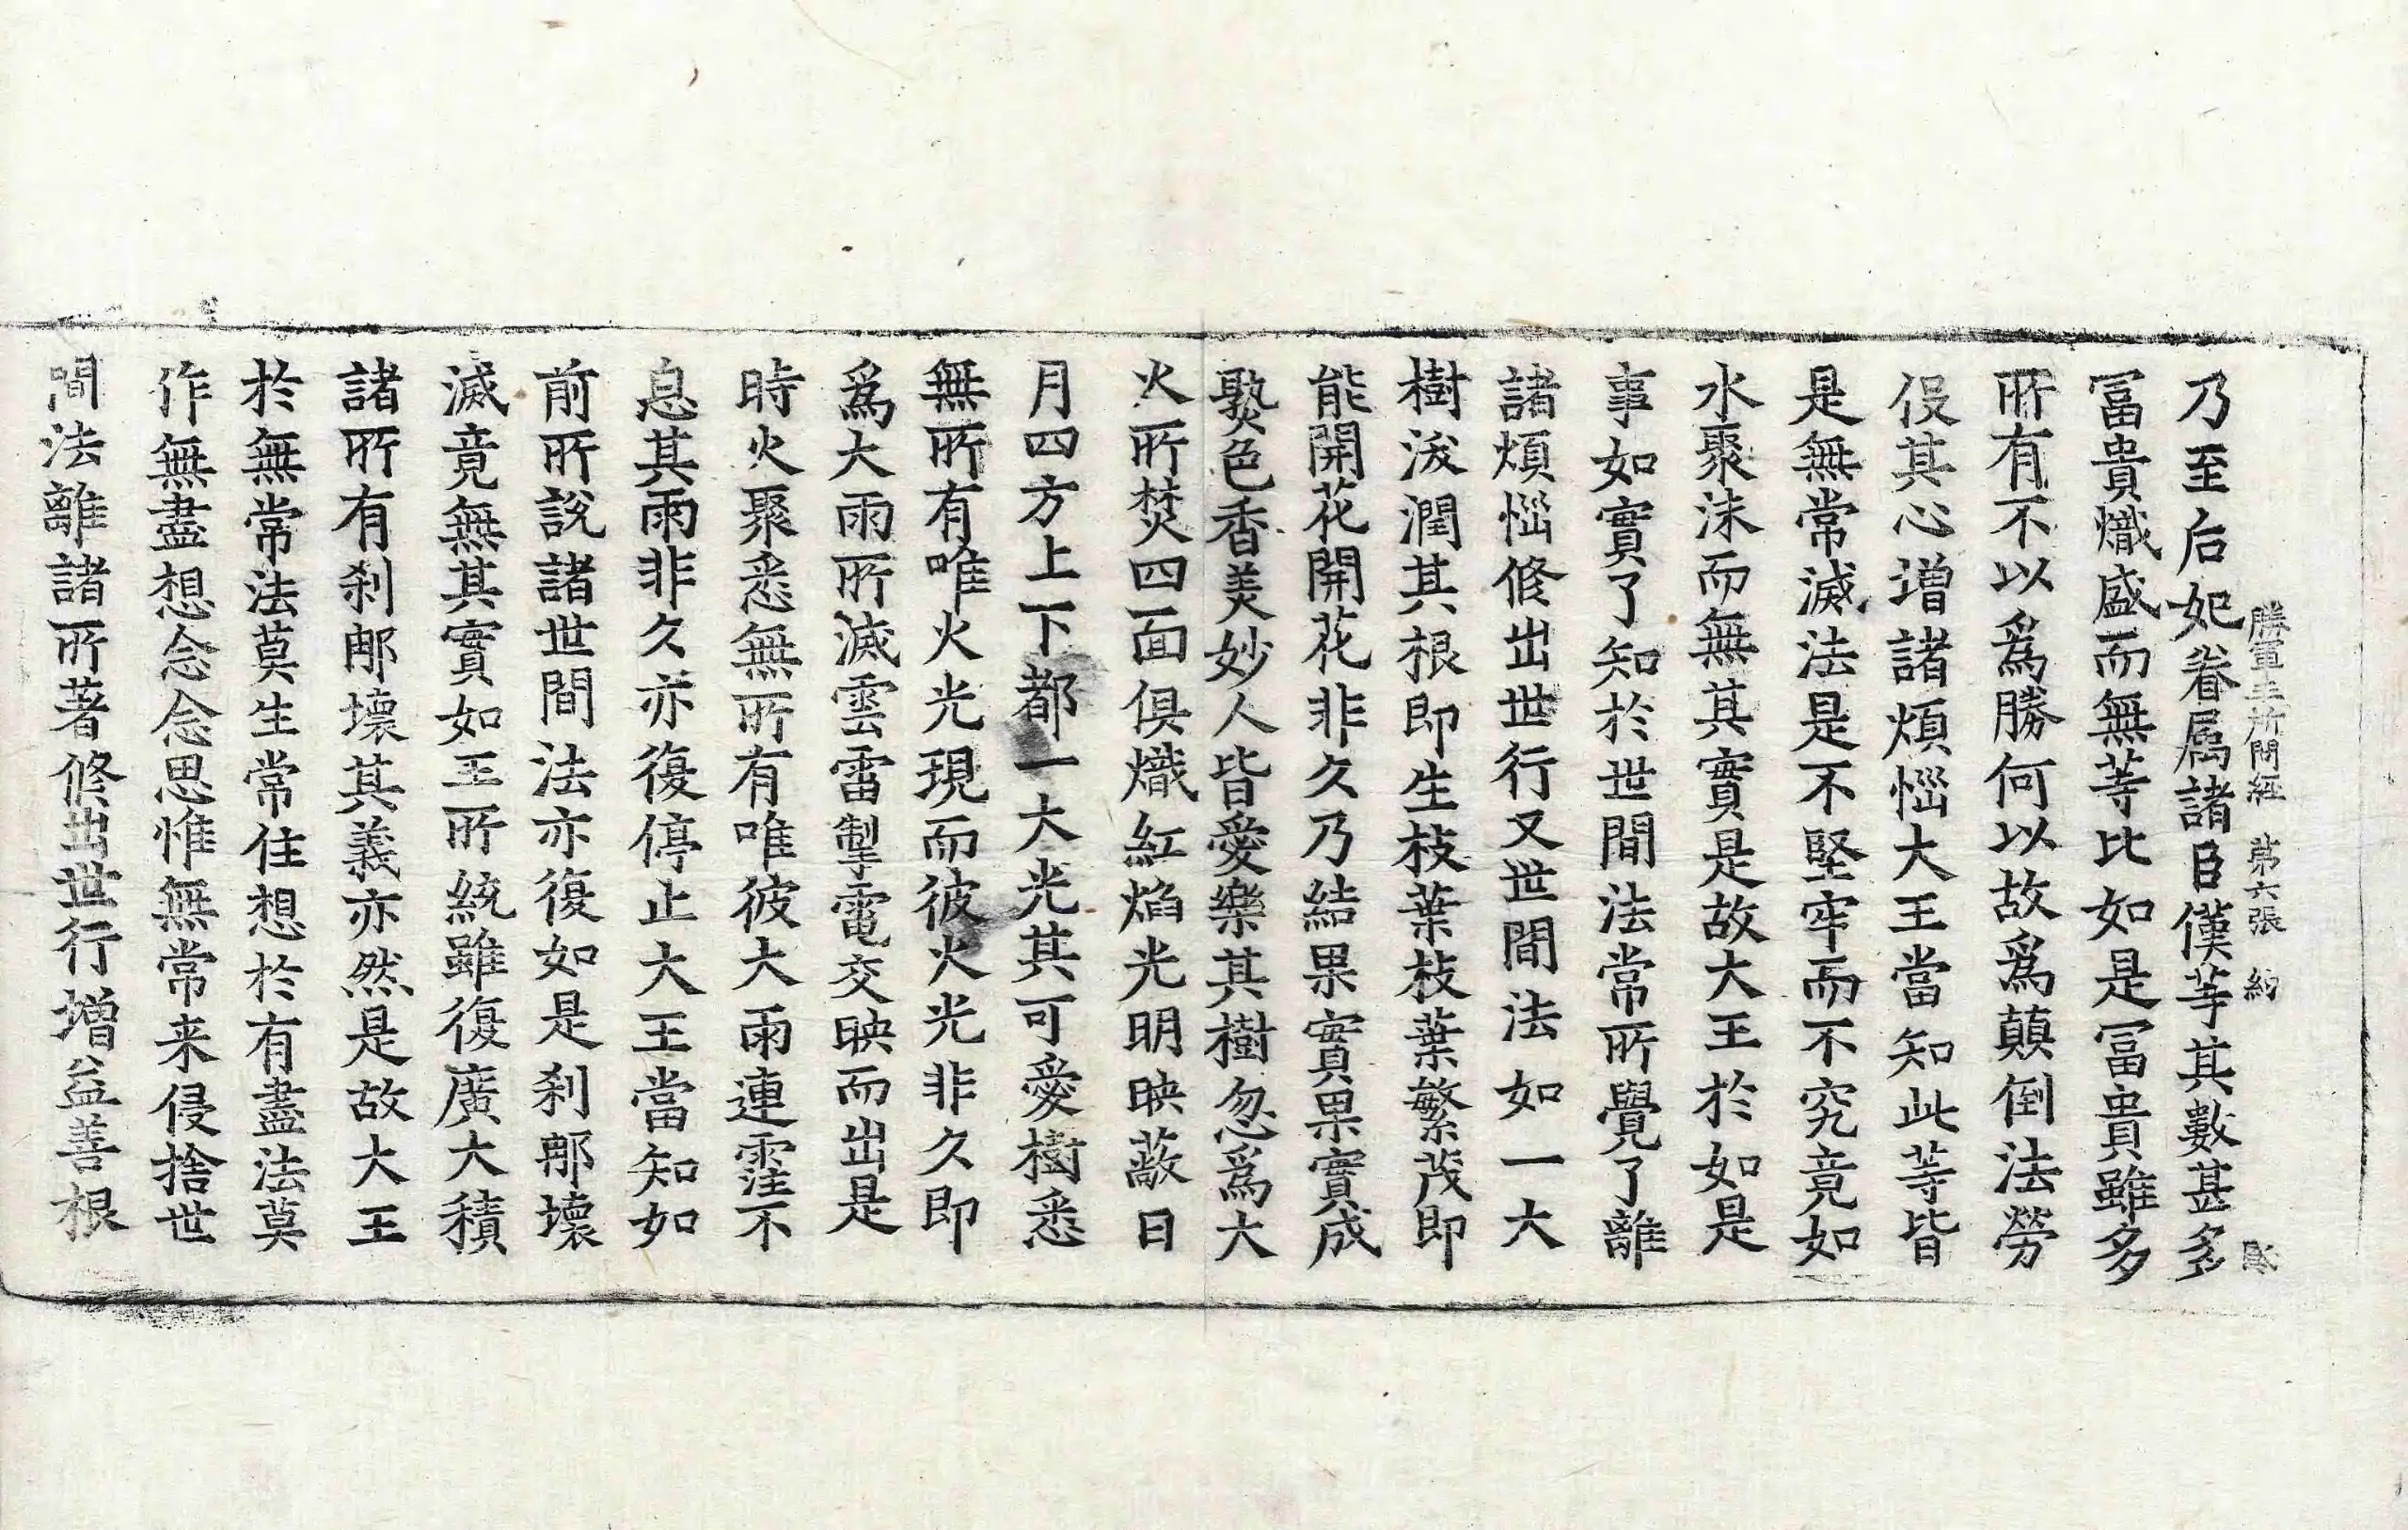 勝軍王所問經 第六張 約
乃至后妃眷屬諸臣僕等其數甚多
冨貴熾盛而無等比如是冨貴雖多
所有不以為勝何以故為顛倒法勞
役其心增諸煩惱大王當知此等皆
是無常滅法是不堅牢而不究竟如
水聚沫而無其實是故大王於如是
事如實了知於世間法常所覺了離
諸煩惱修出世行又世間法如一大
樹溉潤其根即生枝葉枝葉繁茂即
能開花開花非久乃結果實果實成
熟色香美妙人皆愛樂其樹忽為大
火所焚四面俱熾紅焰光明映蔽日
月四方上下都一大光其可愛樹悉
無所有唯火光現而彼火光非久即
為大雨所滅雲雷掣電交映而出是
時火聚悉無所有唯彼大雨連霔不
息其雨非久亦復停止大王當知如
前所說諸世間法亦復如是刹那壞
滅竟無其實如王所統雖復廣大積
諸所有刹那壞其義亦然是故大王
於無常法莫生常住想於有盡法莫
作無盡想念念思惟無常来侵捨世
間法離諸所著修出世行增益善根